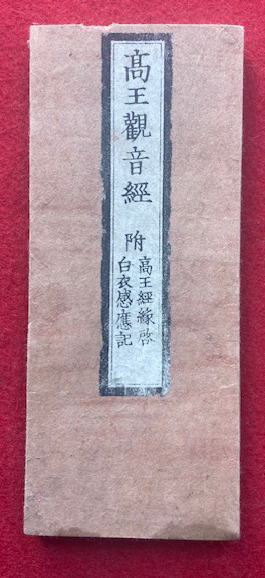 高王觀音經
附
高王經緣啓
白衣感應記